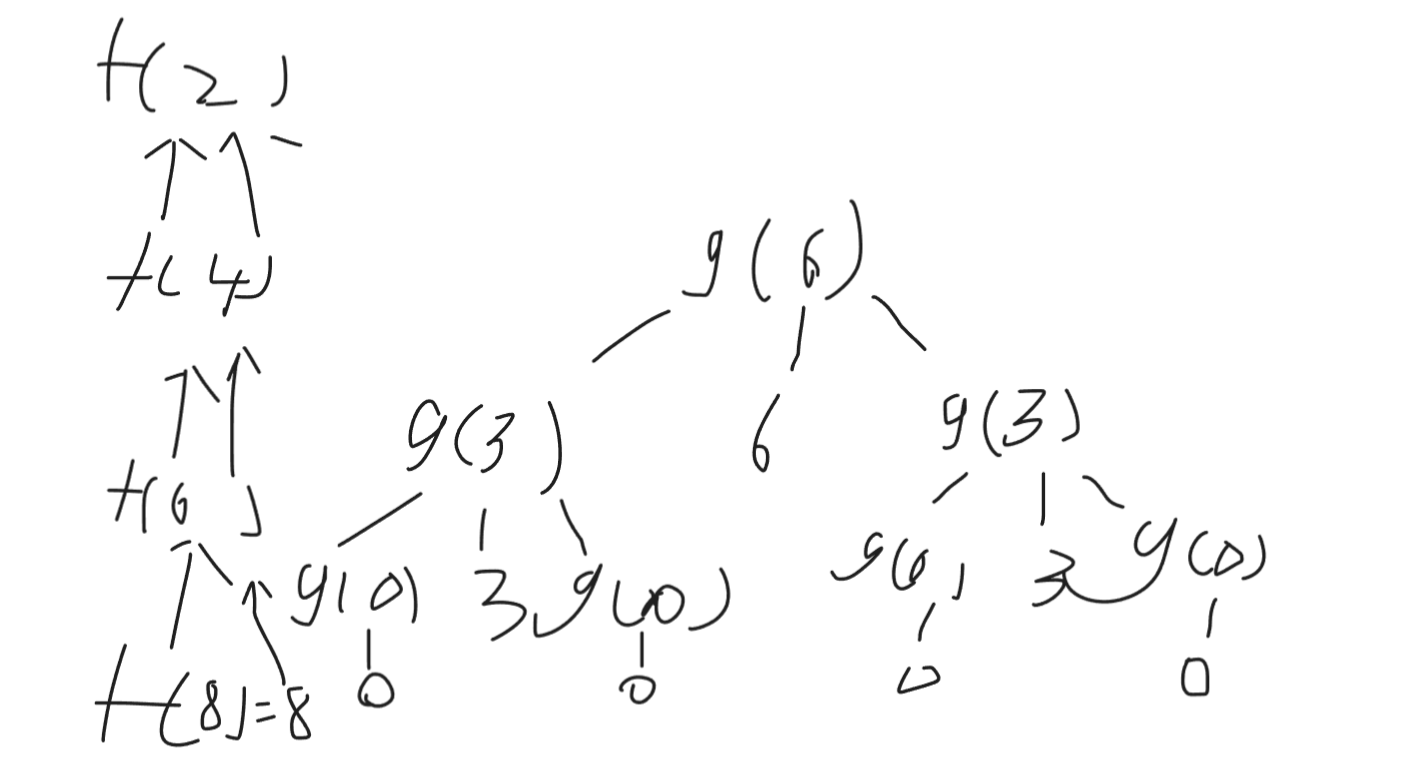 f(2)
f(4)
f(6)
f(8)=8
g(6)
g(3) 6 g(3)
g(0) 3 g(0) g(0) 3 g(0)
0 0 0 0